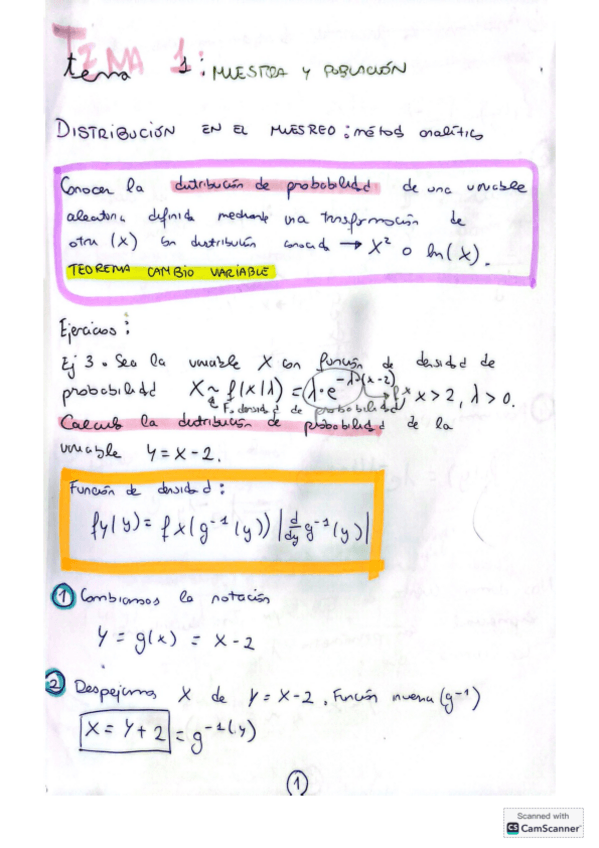 TEMA
tema 1: MUESTRA Y POBLACIÓN
DISTRIBUCIÓN EN EL MUESREO: métod analítico
Conocer la distribución de probabilidad de una variable
aleatoria definida mediante una transformación de
otra (X) con distribución conocida → X² o ln(X).
TEOREMA CAMBIO VARIABLE
Ejercicios:
Ej 3. Sea la variable X con función de densidad de
probabilidad X ~ f(x|λ) = λ·e^{-λ·(x-2)} x>2, λ>0.
F. densidad de probabilidad fx
Calculo la distribución de probabilidad de la
variable Y = X-2.
Función de densidad:
fy(y) = fx(g⁻¹(y)) |d/dy g⁻¹(y)|
① Cambiamos la notación
Y = g(x) = X-2
② Despejamos X de Y = X-2, Función nueva (g⁻¹)
X = Y+2 = g⁻¹(y)
①
Scanned with
CS CamScanner